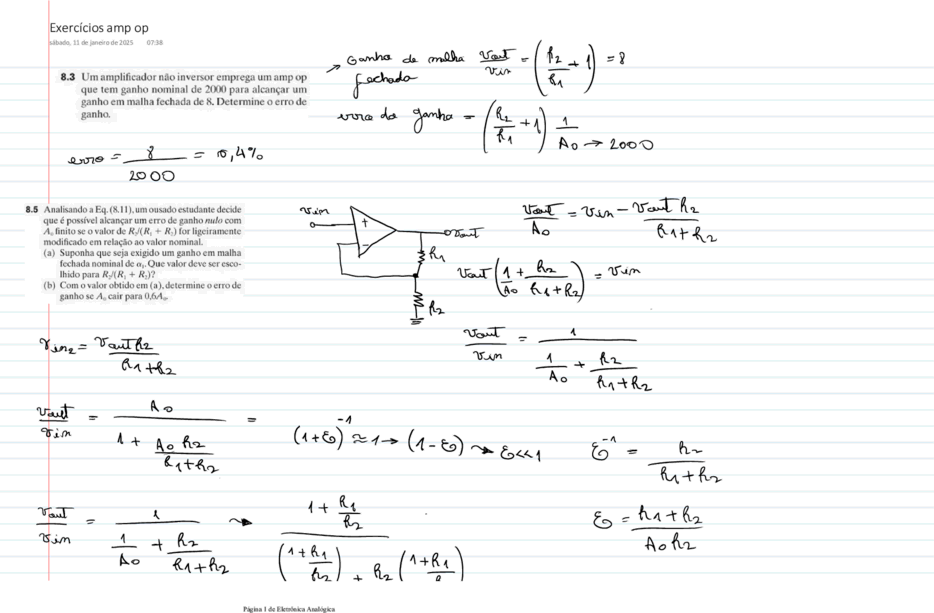 Exercícios amp op
sábado, 11 de janeiro de 2025 07:38
→ Ganho de malha fechada Vout/Vin = (R2/R1 + 1) = 8
8.3 Um amplificador não inversor emprega um amp op
que tem ganho nominal de 2000 para alcançar um
ganho em malha fechada de 8. Determine o erro de
ganho.
erro do ganho = (R2/R1 + 1) 1/A0 → 2000
erro = 8/2000 = 0,4%
8.5 Analisando a Eq. (8.11), um ousado estudante decide
que é possível alcançar um erro de ganho nulo com
A₀ finito se o valor de R₂/(R₁ + R₂) for ligeiramente
modificado em relação ao valor nominal.
(a) Suponha que seja exigido um ganho em malha
fechada nominal de α₁. Que valor deve ser esco-
lhido para R₂/(R₁ + R₂)?
(b) Com o valor obtido em (a), determine o erro de
ganho se A₀ cair para 0,6A₀.
Vin
+
-
Vout
R1
R2
Vout/A0 = Vin - Vout R2/(R1+R2)
Vout (1/A0 + R2/(R1+R2)) = Vin
Vin2 = Vout R2/(R1+R2)
Vout/Vin = 1/(1/A0 + R2/(R1+R2))
Vout/Vin = A0/(1 + A0 R2/(R1+R2)) =
(1+ε)⁻¹ ≈ 1 → (1-ε) → ε<<1
ε⁻¹ = R2/(R1+R2)
Vout/Vin = 1/(1/A0 + R2/(R1+R2)) → (1 + R1/R2)/((1+R1/R2) + R2 (1+R1/
ε = (R1+R2)/(A0 R2)
Página 1 de Eletrônica Analógica